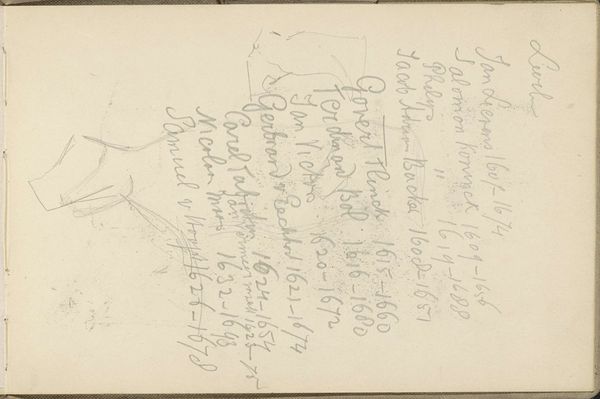 Jan Lievens 1607-1674
Salomon Koninck 1609-1656
Philips " 1619-1688
Jacob Adriaen Backer 1608-1651
Govert Flinck 1615-1660
Ferdinand Bol 1616-1680
Jan Victors 1620-1672
Gerbrand v Eeckhout 1621-1674
Carel Fabritius 1624-1654
1625-75
Nicolaas Maes 1632-1693
Samuel v Hoogst 1626-1678